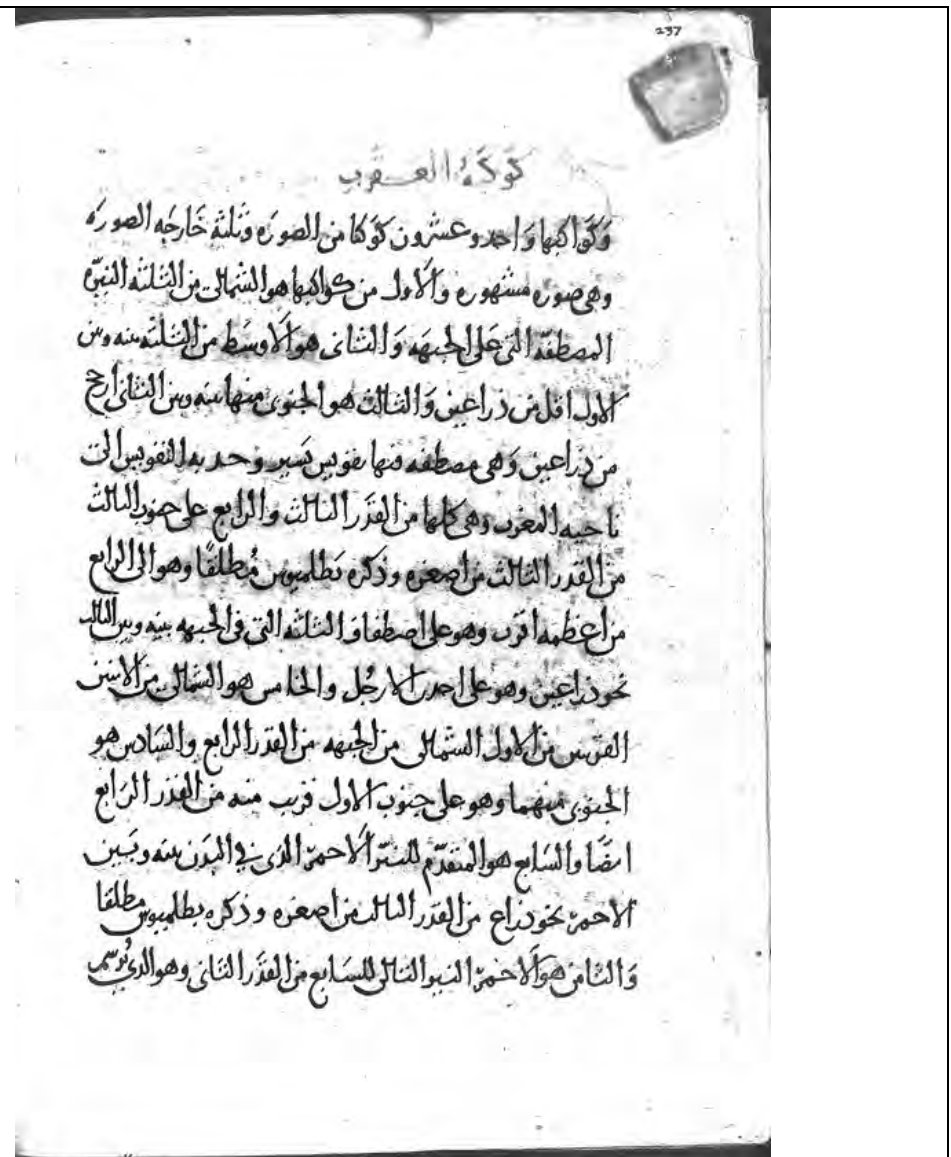 237
كوكبة العقرب
وكواكبها واحد وعشرون كوكبا من الصوره وثلثة خارجه الصوره
وهى صوره مشهوره والاول من كواكبها هو الشمالى من الثلثه النيره
المصطفه التى على الجبهه والثانى هو الاوسط من الثلثه بينه وبين
الاول اقل من ذراعين والثالث هو الجنوبى منها بينه وبين الثانى ارجح
من ذراعين وهى مصطفه فيها تقويس يسير وحدبه التقويس الى
ناحيه المغرب وهى كلها من القدر الثالث والرابع على جنوب الثالث
من القدر الثالث من اصغره وذكره بطلميوس مطلقا وهو الى الرابع
من اعظمه اقرب وهو على اصطفاف الثلثه التى فى الجبهه بينه وبين الثالث
نحو ذراعين وهو على احدى الارجل والخامس هو الشمالى من الاثنين
القريبين من الاول الشمالى من الجبهه من القدر الرابع والسادس هو
الجنوبى منهما وهو على جنوب الاول قريب منه من القدر الرابع
ايضا والسابع هو المتقدم للنير الاحمر الذى فى البدن بينه وبين
الاحمر نحو ذراع من القدر الثالث من اصغره وذكره بطلميوس مطلقا
والثامن هو الاحمر النير التالى للسابع من القدر الثانى وهو الذى يرسم